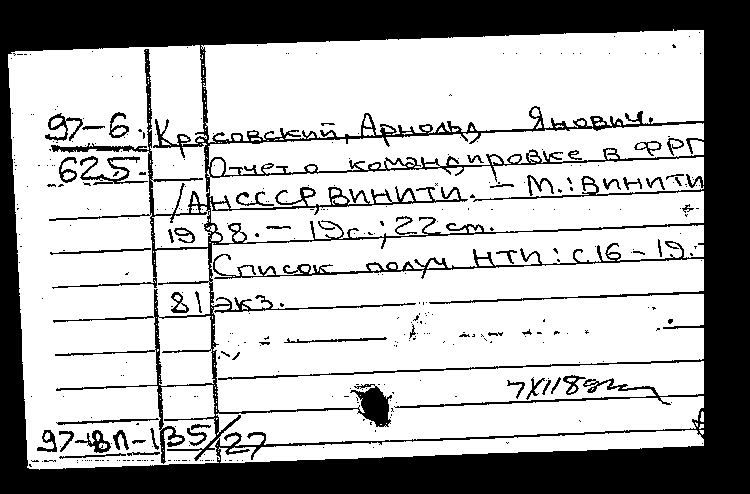 97-6. Красовский, Арнольд Янович.
625. Отчет о командировке в ФРГ
/АНСССР, ВИНИТИ. – М.: ВИНИТИ
1988. – 19с.; 22ст.
Список получ. НТИ: с.16 – 19. –
81 экз.
97-ВЛ-135/27